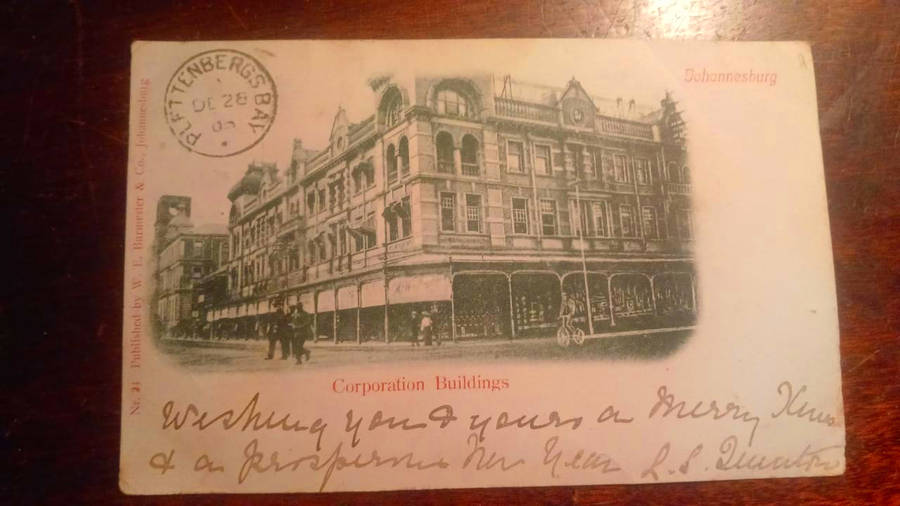 PLETTENBERG'S BAY
DE 28
Johannesburg
Nr. 24 Published by W. E. Burmester & Co., Johannesburg
Corporation Buildings
Wishing you & yours a Merry Xmas
& a prosperous New Year L. S.